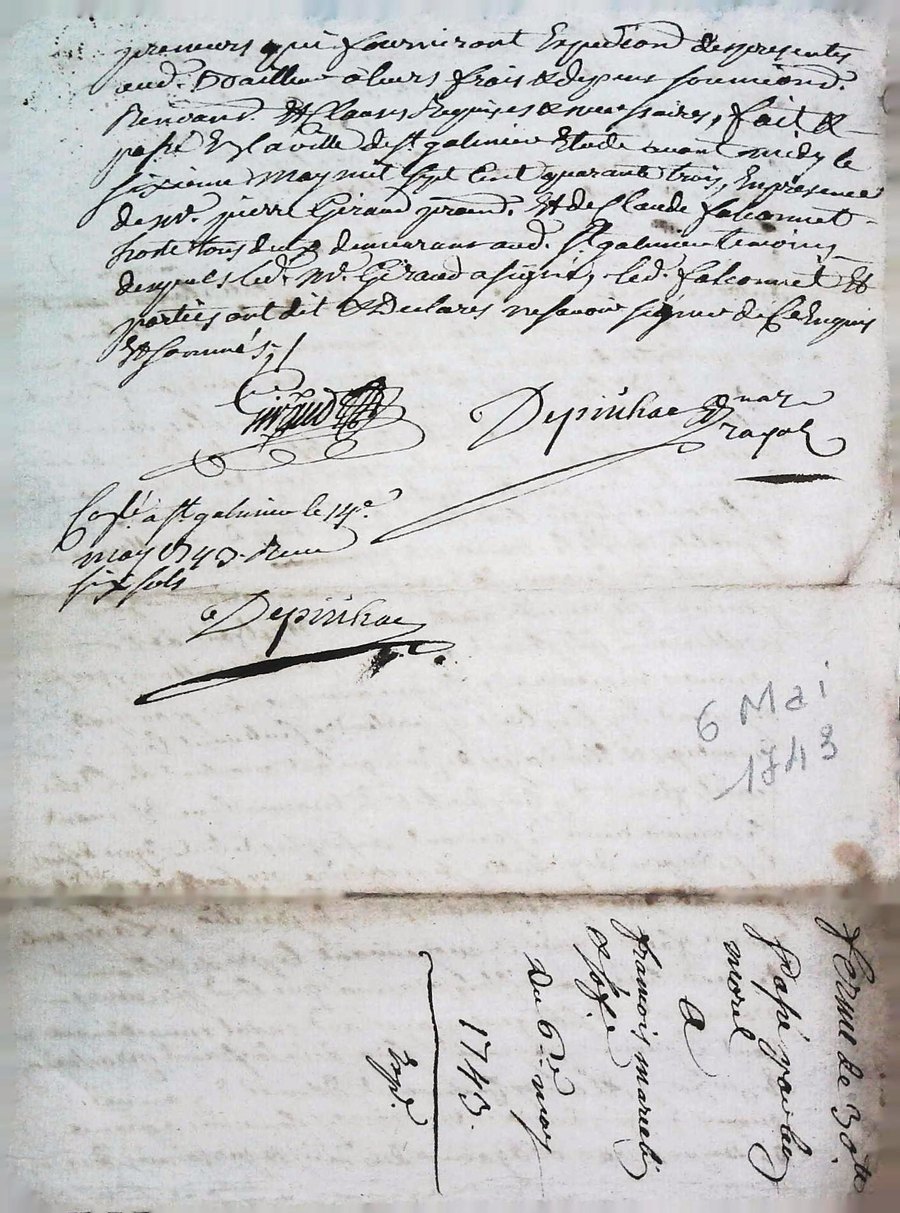 preneurs qui fourniront Expedition des presentes
aud. Bailleur a leurs frais & depens soumiond.
Renoand. Et Clauses Requises & necessaires, fait &
passé En la ville de st galmier Etude avant midy le
sixieme may mil sept Cent quarante trois, En presence
de Mr. pierre Giraud prand. Et de Claude falconnet
hoste tous deux demeurant aud. st galmier temoins
desquels led. Mr. Giraud a signé, led. falconnet Et
parties ont dit & Declarés ne savoir signer de Ce Enquis
Et sommés ./
Giraud
Depinhac
Contlé a st galmier le 14e
may 1743. Receu
six sols
Depinhac
6 Mai
1743
ferme de 30 tt
Passé par
morel
A
francois
Du 6e may
1743.
Exp.